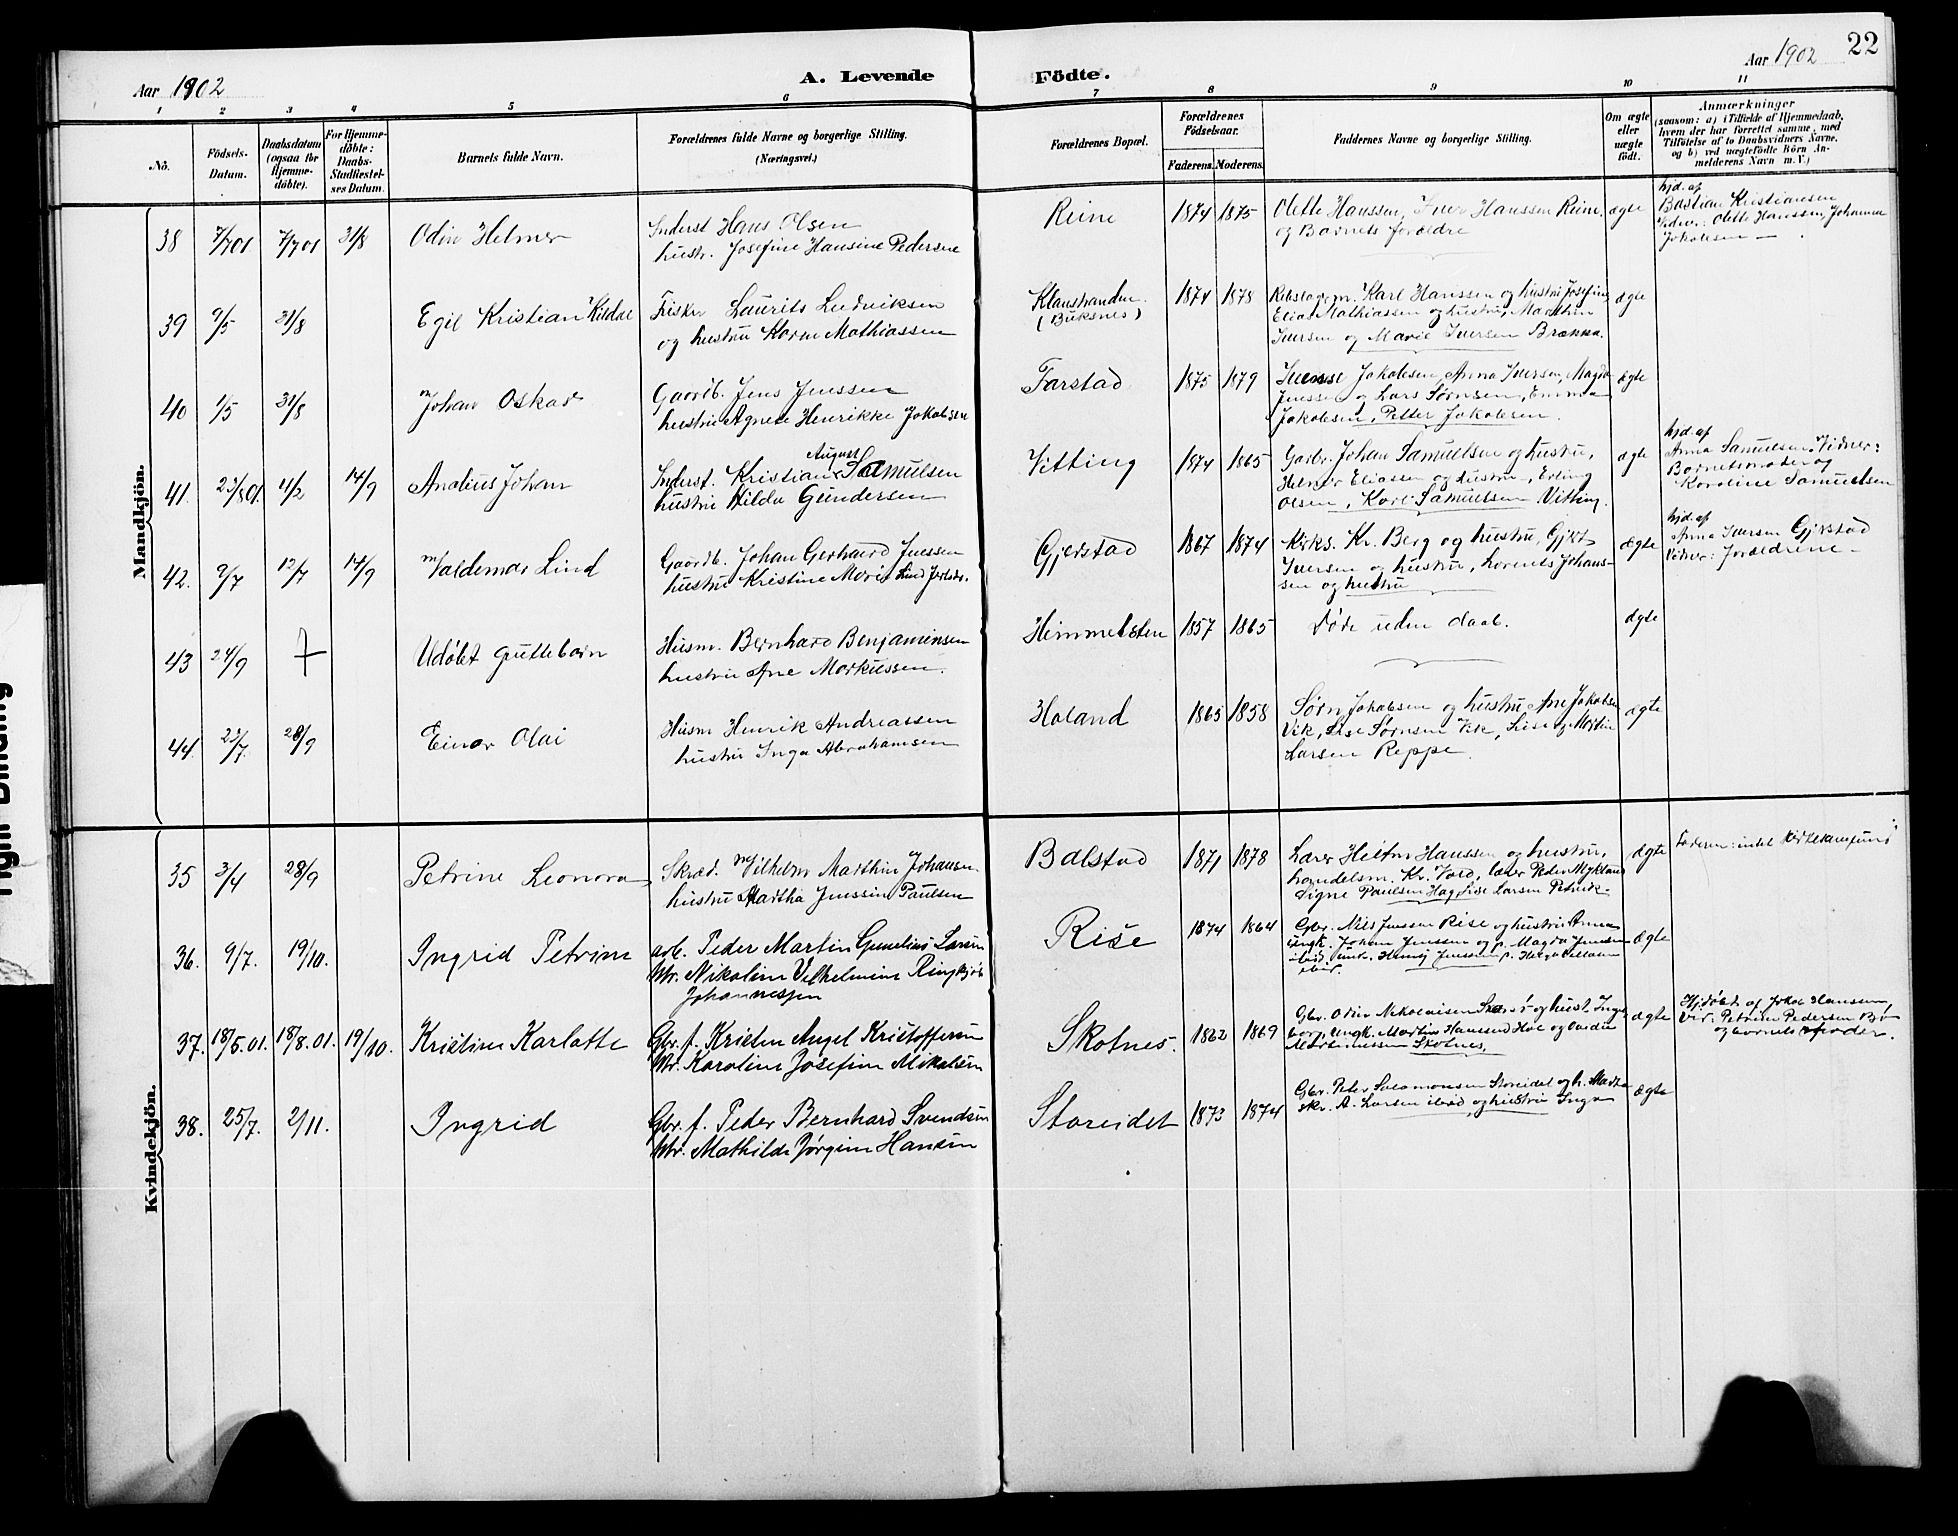 22
Aar 1902
A. Levende
Födte.
Aar 1902
1 2 3 4 5 6 7 8 9 10 11
No.
Födsels-
Datum.
Daabsdatum
(ogsaa for
Hjemme-
döbte).
For Hjemme-
döbte:
Daabs-
Stadfæstel-
ses Datum.
Barnets fulde Navn.
Forældrenes fulde Navne og borgerlige Stilling.
(Næringsvei.)
Forældrenes Bopæl.
Forældrenes
Födselsaar.
Faderens. Moderens.
Faddernes Navne og borgerlige Stilling.
Om ægte
eller
uægte
födt.
Anmærkninger
(saasom: a) i Tilfælde af Hjemmedaab,
hvem der har forrettet samme, med
Tilföielse af to Daabsvidners Navne,
og b) ved uægtefödte Börn An-
melderens Navn m. V.)
Mandkjön.
38 7/7 01 7/7 01 31/8 Odin Helmer
Inderst Hans Olsen
hustr. Josefine Hansine Pedersen
Reine 1874 1875
Olette Hanssen, Iver Hanssen Reine,
og Barnets forældre
ægte
hjd. af
Bastian Kristiansen
Vidner: Olette Hanssen, Johanna
Jakobsen
39 9/5 31/8 Egil Kristian Kildal
Fisker Laurits Ludviksen
og hustru Karen Mathiassen
Klaustranden
(Buksnes)
1874 1878
Karl Hanssen og hustru Josefine
Elias Mathiassen og hustru, Marthin
Iversen og Marie Iversen Brækka.
ægte
40 1/5 31/8 Johan Oskar
Gaardb. Jens Jenssen
hustru Agnete Henrikke Jakobsen
Farstad 1875 1879
Jakobsen, Anna Iversen, Magda
Jenssen og Lars Sørnsen, Emma
Jakobsen, Petter Jakobsen.
ægte
41. 23/8 01. 11/2 14/9 Analius Johan
August
Inderst. Kristian Samulsen
hustru Hilda Gundersen
Vitting 1874 1865
Garbr. Johan Samuelsen og hustru,
Helmer Eliassen og hustru, Erling
Olsen, Karl Samuelssen Vitting.
ægte
hjd. af
Anna Samuelsen. Vidner:
Barnets moder og
Karoline Samuelsen
42. 9/7 12/7 14/9 Valdemar Lind
Gaardb. Johan Gerhard Jenssen
hustru Kristine Marie Lind
Gjerstad 1867 1874
Kirks. Kr. Berg og hustru, Gjert
Iversen og hustru, Lorents Johans-
sen og hustru
ægte
hjd. af
Anna Iversen Gjerstad
Vidner: Forældrene
43 24/9 Udøbt guttebarn
Husm. Bernhard Benjaminsen
hustru Ane Markussen.
Himmelsten 1857 1865
Døde uden daab.
ægte
44. 22/7. 28/9 Einar Olai
Husm Henrik Andreassen
hustru Inga Abrahamsen
Haland 1865 1858
Sørn Jakobsen og hustru Ane Jakobsen
Vik, Lise Sørnsen Vik, Lise og Martin
Larsen Reppe.
ægte
Kvindekjön.
35 3/4 28/9 Petrine Leonora
Skræd. Vilhelm Marthin Johansen
hustru Martha Jenssine Paulsen
Balstad 1871 1878
Lærer Heltor Hanssen og hustru,
handelsm. Kr. Vold, lærer Peder Myklan
Signe Paulsen Hag, Lise Larsen Petvik
ægte
Faderen: intet kirkesamfund
36. 9/7. 19/10. Ingrid Petrine
arb. Peder Martin Gunelius Larsen
Mr. Nikoline Vilhelmine Ringkjøb
Johannesen
Rise 1874 1864
Gbr. Nils Jenssen Rise og hustru Anna
ungk. Johan Jenssen og p. Magda Jenssen
ibid.
ægte
37. 18/5.01. 18/8.01. 19/10. Kristine Karlotte
Gbr. f. Kristen Angel Kristoffersen
Mr. Karoline Josefine Mikalsen
Skotnes. 1862 1869
Gbr. Odin Nikolaisen og hust. Inge
borg, Ungk. Martin Hanssen Hol og
Martinussen Skotnes.
ægte
Hjdøbt af Jakob Hanssen,
Vid: Petrine Pedersen Bø
og barnets fader.
38. 25/7. 2/11. Ingrid
Gbr. f. Peder Bernhard Svendsen
Mr. Mathilde Jørgine Hansen
Storeidet 1873 1874
Gbr. Peter Salomonsen Storeidet og h. Marta
skr. A. Larsen ibid og hustru Inga
ægte